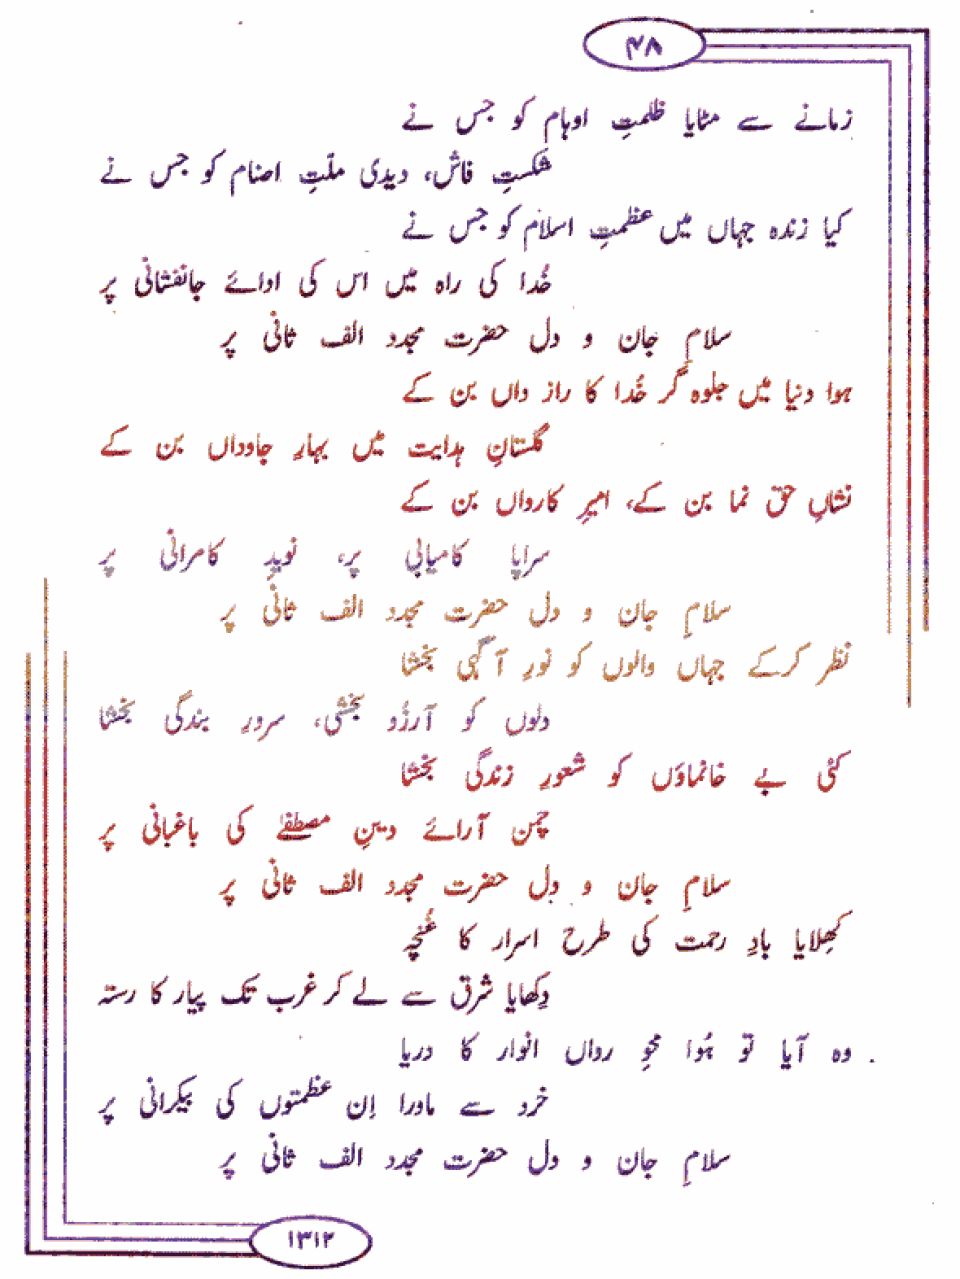 ۴۸
زمانے سے مٹایا ظلمتِ اوہام کو جس نے
شکستِ فاش، دیدی ملّتِ اصنام کو جس نے
کیا زندہ جہاں میں عظمتِ اسلام کو جس نے
خُدا کی راہ میں اس کی ادائے جانفشانی پر
سلامِ جان و دل حضرت مجدد الف ثانی پر
ہوا دنیا میں جلوہ گر خُدا کا راز داں بن کے
گلستانِ ہدایت میں بہارِ جاوداں بن کے
نشانِ حق نما بن کے، امیرِ کارواں بن کے
سراپا کامیابی پر، نویدِ کامرانی پر
سلامِ جان و دل حضرت مجدد الف ثانی پر
نظر کرکے جہاں والوں کو نورِ آگہی بخشا
دلوں کو آرزُو بخشی، سرورِ بندگی بخشا
کئی بے خانماؤں کو شعورِ زندگی بخشا
چمن آرائے دینِ مصطفےٰ کی باغبانی پر
سلامِ جان و دل حضرت مجدد الف ثانی پر
کھِلایا بادِ رحمت کی طرح اسرار کا غُنچہ
دِکھایا شرق سے لے کر غرب تک پیار کا رستہ
وہ آیا تو ہُوا محوِ رواں انوار کا دریا
خرد سے ماورا اِن عظمتوں کی بیکرانی پر
سلامِ جان و دل حضرت مجدد الف ثانی پر
۱۳۱۲